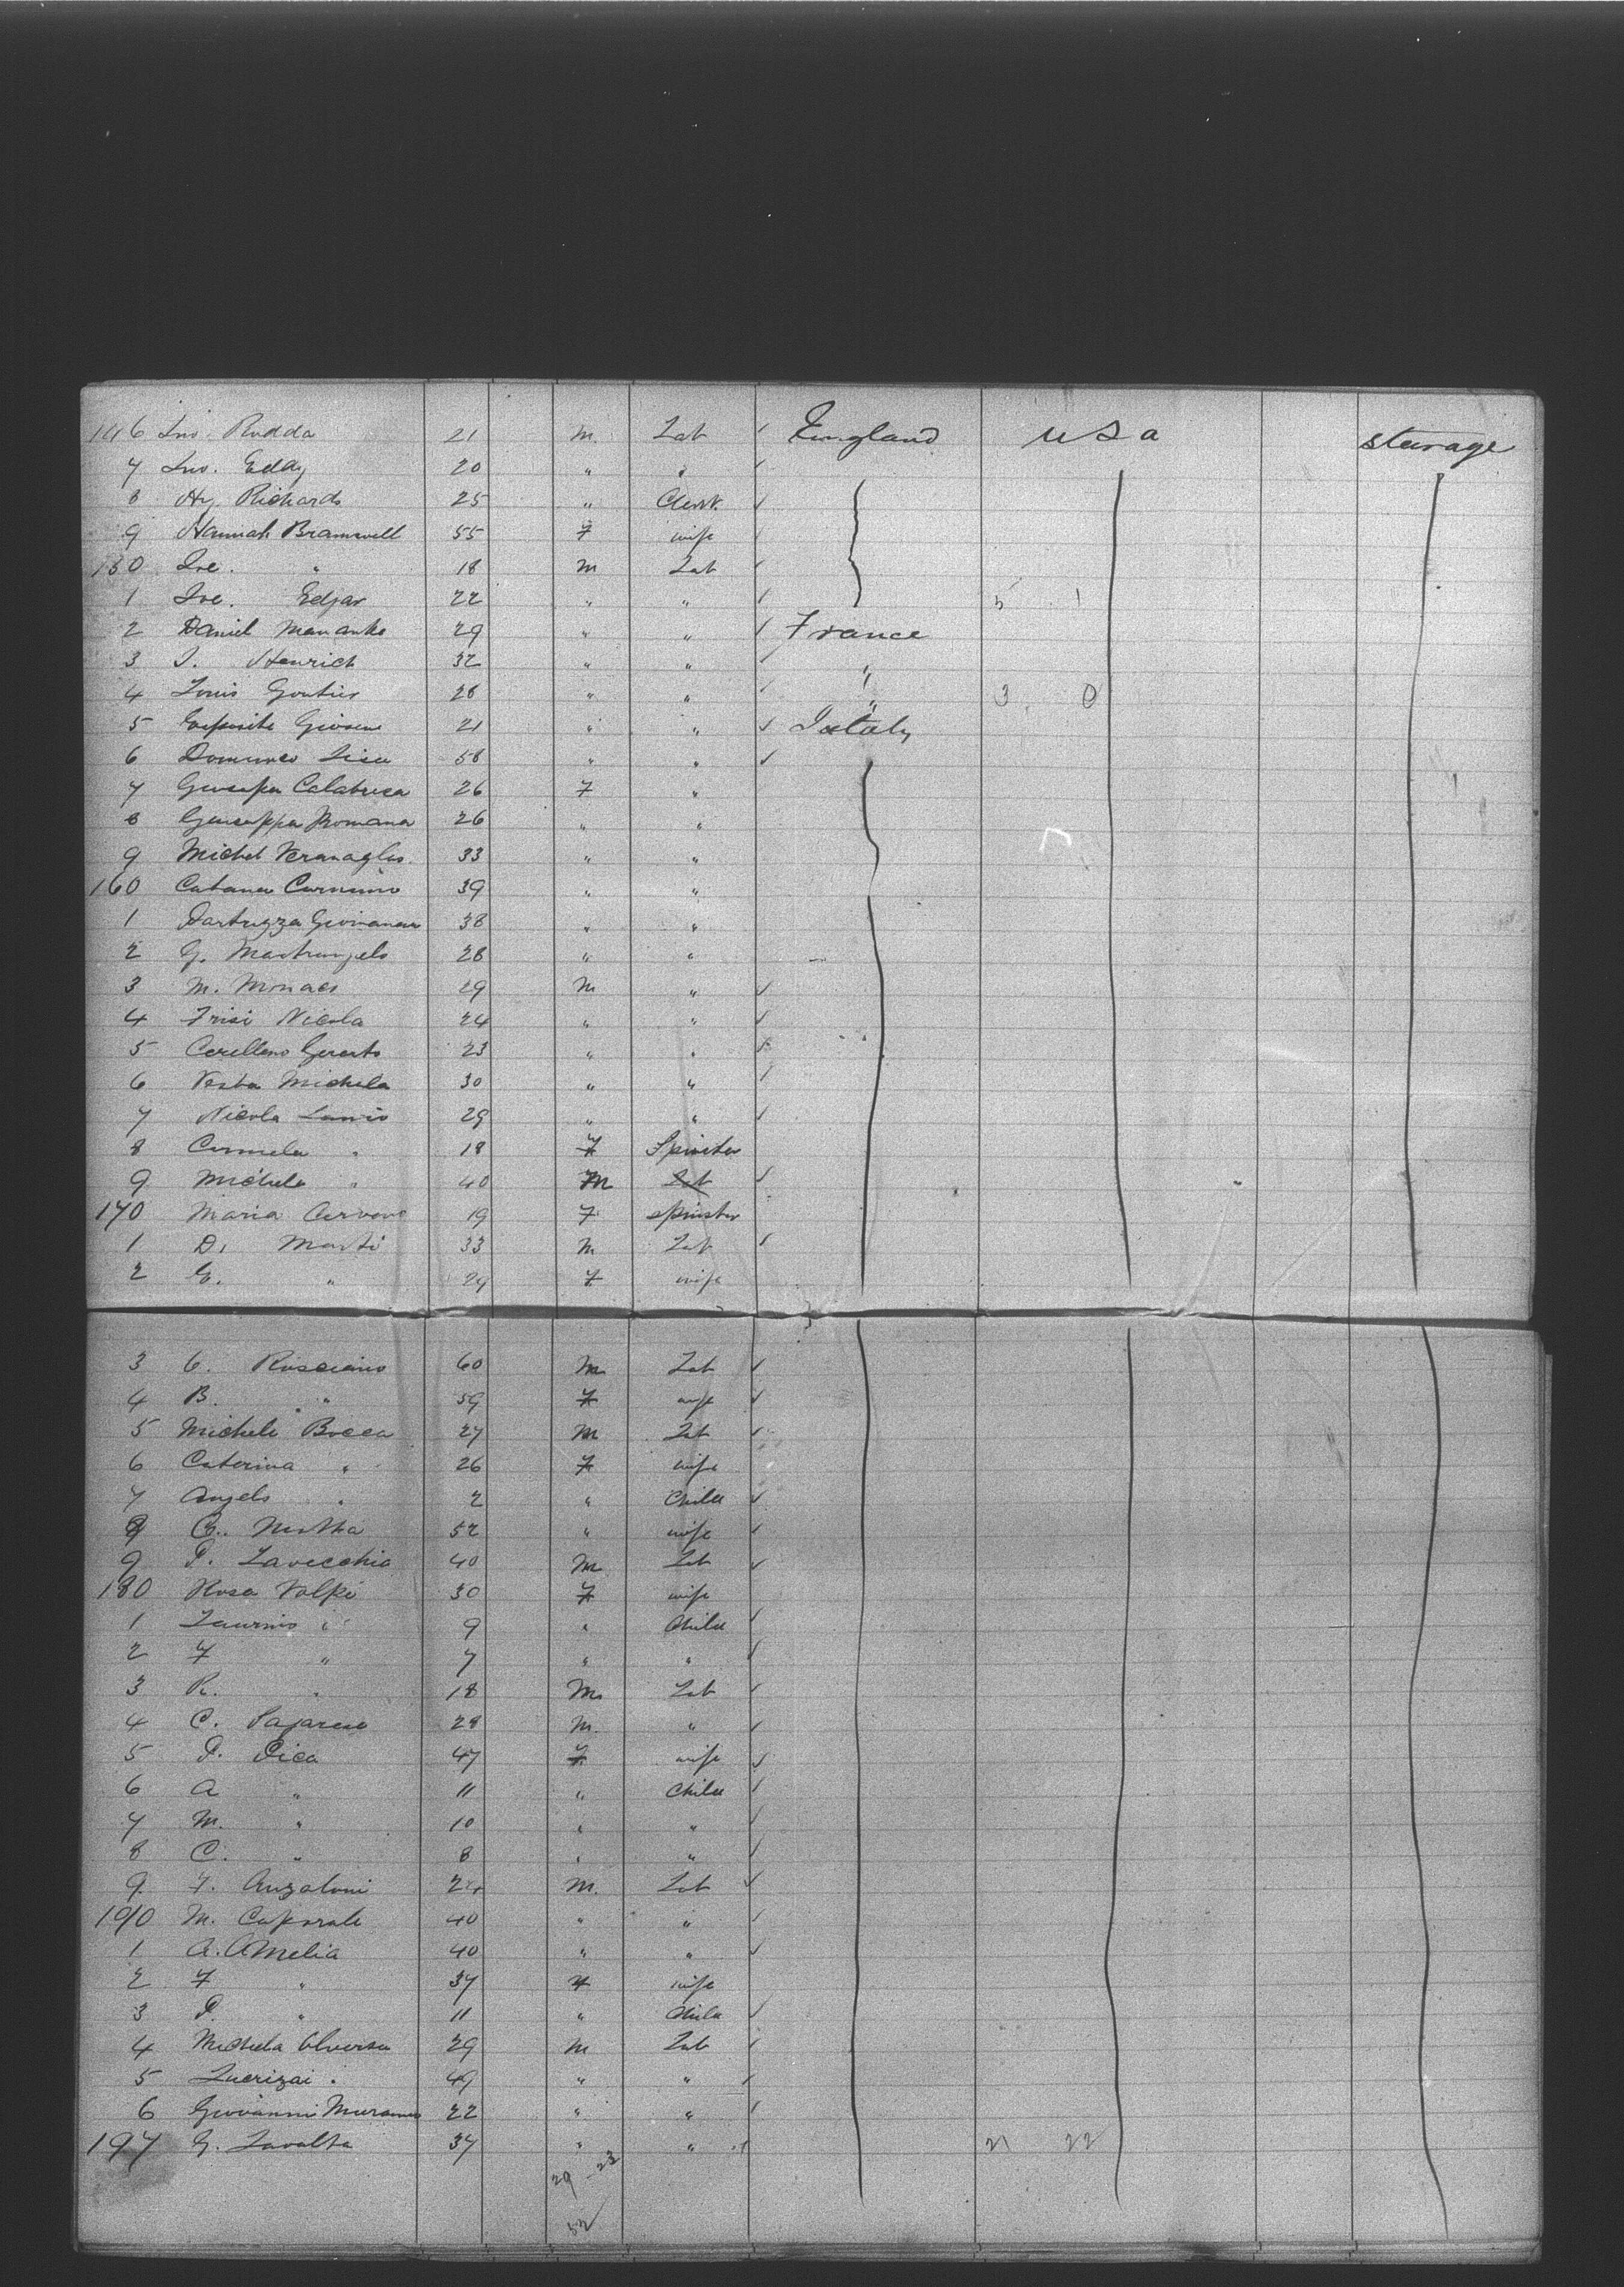 146 Jno. Rudda 21 M. Lab England U S a steerage
7 Jno. Eddy 20 " "
8 Hy. Richards 25 " Clerk
9 Hannah Bramwell 55 F wife
150 " 18 M Lab
1 Edgar 22 " " 5 1
2 Daniel 29 " " France
3 J. Henrich 32 " " "
4 Louis Goutier 28 " " " 3 0
5 21 " " Iataly
6 Lisa 58 " "
7 Calabresa 26 F "
8 Giuseppa Romana 26 " "
9 Michel 33 " "
160 39 " "
1 38 " "
2 G. Mastrangelo 28 " "
3 M. Monaco 29 M "
4 Frisi Nicola 24 " "
5 23 " "
6 Michela 30 " "
7 Nicola 29 " "
8 Carmela " 18 F Spinster
9 Michele " 40 M Lab
170 Maria 19 F spinster
1 D. Marti 33 M Lab
2 G. " 29 F wife
3 60 M Lab
4 B. " 59 F wife
5 Michele Bocca 27 M Lab
6 Caterina " 26 F wife
7 Angelo " 2 " Child
8 52 " wife
9 P. Lavecchia 40 M Lab
180 Rosa Volpi 30 F wife
1 " 9 " Child
2 F " 7 " "
3 R. " 18 M. Lab
4 C. 28 M. "
5 P. Pica 47 F wife
6 A " 11 " Child
7 M. " 10 " "
8 C. " 8 " "
9 F. Anzaloni 24 M. Lab
190 M. Caporale 40 " "
1 A. Amelia 40 " "
2 F " 37 F wife
3 P. " 11 " Child
4 Michela 29 M Lab
5 49 " "
6 Giovanni 22 " "
197 G. Lavalta 37 " " 21 22
29 23
52